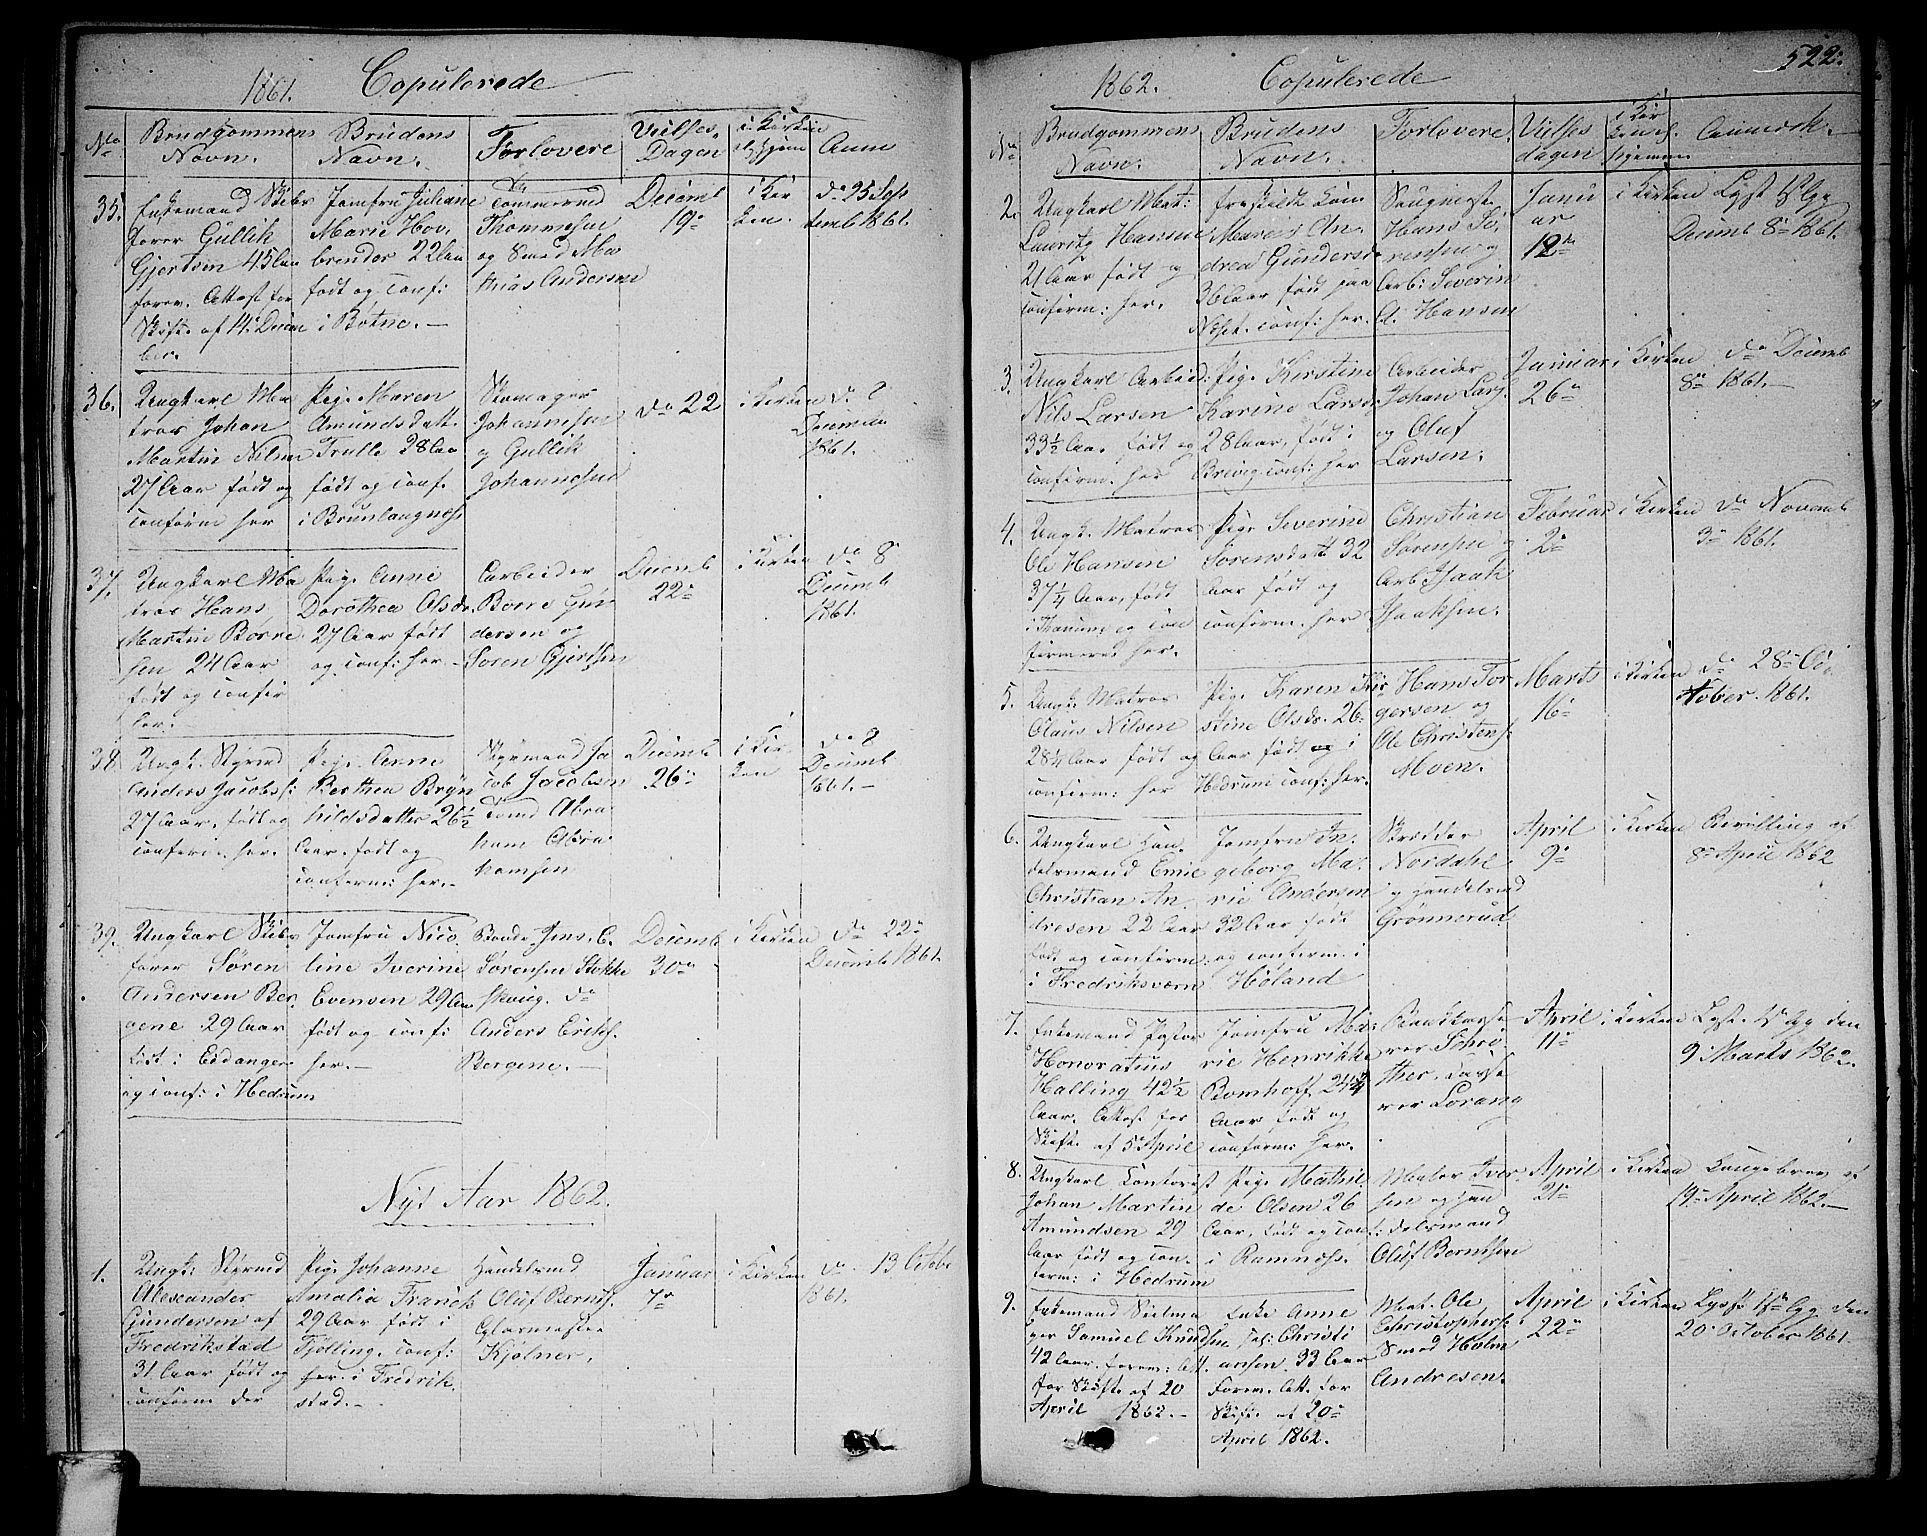 1861. Copulerede
No Brudgommens Navn. Brudens Navn. Forlovere Vielses Dagen i Kirken el. hjem Anm
35. Enkemand Skibs
fører Gullik
Gjertsen 45 Aar
forev. Attest for
Skifte af 14. Decem
ber.
Jomfru Juliane
Marie Hov,
brender 22 Aar
født og conf:
i Botne.—
Tømmermd
Thommesen
og Smed Ma
thias Andersen
Decemb
19de
i Kir
ken.
do 25 Sept
temb 1861.
36. Ungkarl Ma
tros Johan
Martin Nilsen
27 Aar født og
conferm her
Pige Maren
Amundsdatt.
Trulle 28 Aar
født og conf.
i Brunlaugnæs
Skomager
Johannesen
og Gullik
Johannesen
do 22
i Kirken
do 8
Decembr
1861.
37. Ungkarl Ma
tros Hans
Martin Børre
sen 24 Aar
født og confir
her.
Pige Anne
Dorothea Olsdr.
27 Aar født
og conf: her.—
Arbeider
Borre Gun
dersen og
Søren Gjertsen
Decemb
22de
i Kirken
do 8
Decemb
1861.
38. Ungk. Styrmd
Anders Jacobs:
27 Aar, født og
conferm. her.
Pige Anne
Berthea Bryn
hildsdatter 26½
Aar. født og
conferm: her.—
Styrmand Ja
cob Jacobsen
Tømd Abra
ham Abra
hamsen
Decemb
26de
i Kir
ken
do 8
Decemb
1861.—
39. Ungkarl Skibs
fører Søren
Andersen Ber
gene 29 Aar
født i Eidanger
og conf: i Hedrum
Jomfru Nico
line Iverine
Evensen 29 Aar
født og conf:
her.—
Bonde Jens C.
Sørensen Stokke
do
Anders Ericks.
Bergene.—
Decemb
30de
i Kirken
do 22de
Decemb 1861
Nyt Aar 1862.
1. Ungk: Styrmd
Alexander
Gundersen af
Fredrikstad
31 Aar født og
conferm der
Pige Johanne
Amalia Franck
29 Aar født i
Tjølling, conf:
her. i Fredrik
stad.—
Handelsmd
Oluf Bernts.
Glasmester
Kjølner.
Januar
7de
i Kirken
do. 13 Octobr
1861.
522.
1862. Copulerede
No Brudgommens Navn. Brudens Navn. Forlovere. Vielses dagen i Kirken el. hjemme Anmerk.
2. Ungkarl Mat:
Lauritz Hansen
21 Aar født og
conferm: her.
fraskildt Kone
Maren An
drea Gundersdr
36 Aar født paa
Næset. conf: her.
Saugmest.
Hans Sö
rensen og
Arb: Severin
A. Hansen
Janu
ar
12de
i Kirken
Lyst 1ste Gg
Decemb 8de 1861.
3. Ungkarl Arbeid:
Nils Larsen
33½ Aar født og
conferm. her
Pige Kirstine
Karine Larsdr
28 Aar, født i
Brevig. conf: her
Arbeider
Johan Lars.
og Oluf
Larsen.
Januar
26de
i Kirken
do Decemb
8de 1861.—
4. Ungk. Matros
Ole Hansen
37¼ Aar, født
i Thanum og con
firmeret her.
Pige Severine
Sørensdatt 32
Aar født og
conferm. her
Christian
Sørensen og
Arb Isaak
Isaaksen.
Februar
2de
i Kirken
do Novemb
3de 1861.
5. Ungk. Matros
Olaus Nilsen
28¼ Aar født og
conferm: her
Pige Karen Kir
stine Olsdr. 26
Aar født og i
Hedrum conf: her.
Hans Tor
gersen og
Ole Christens.
Moen.
Marts
16de
i Kirken
do 28de Oc
tober. 1861.
6. Ungkarl Han
delsmand Emil
Christian An
dresen 22 Aar
født og conferm:
i Fredriksværn
Jomfru In
geborg Ma
rie Andersen
32 Aar født
og conferm. i
Høland
Skrædder
Nordahl
og Handelsmd
Grönnerud
April
9de
i Kirken
Bevilling af
8de April 1862
7. Enkemand Pastor
Honoratius
Halling 42½
Aar. Attest for
Skifte af 5te April
Jomfru Ma
rie Henrikke
Bomhoff 24¼
Aar født og
conferm: her.
rer Schrö
ther. Kasse
rer Lorang
April
11te
i Kirken
Lyst. 1ste Gg den
9 Marts 1862.
8. Ungkarl Contorist
Johan Martin
Amundsen 29
Aar født og con
ferm: i Hedrum
Pige Mathil
de Olsen 26
Aar, født og conf:
i Ramnæs.
Maler Iver
sen og Han
delsmand
Oluf Berntsen
April
21de
i Kirken
Kongebrev af
19de April 1862.—
9. Enkemand Seilma
ger Samuel Knudsen
42 Aar. forev: Att.
for Skifte af 20
April 1862.—
Enke Anne
Christi
ansen. 33 Aar
Forev. Att. for
Skifte af 20de
April 1862.
Mat. Ole
Christophers:
Smed Holm
Andresen.
April
22de
i Kirken
Lyst 1ste Gg den
20 October 1861